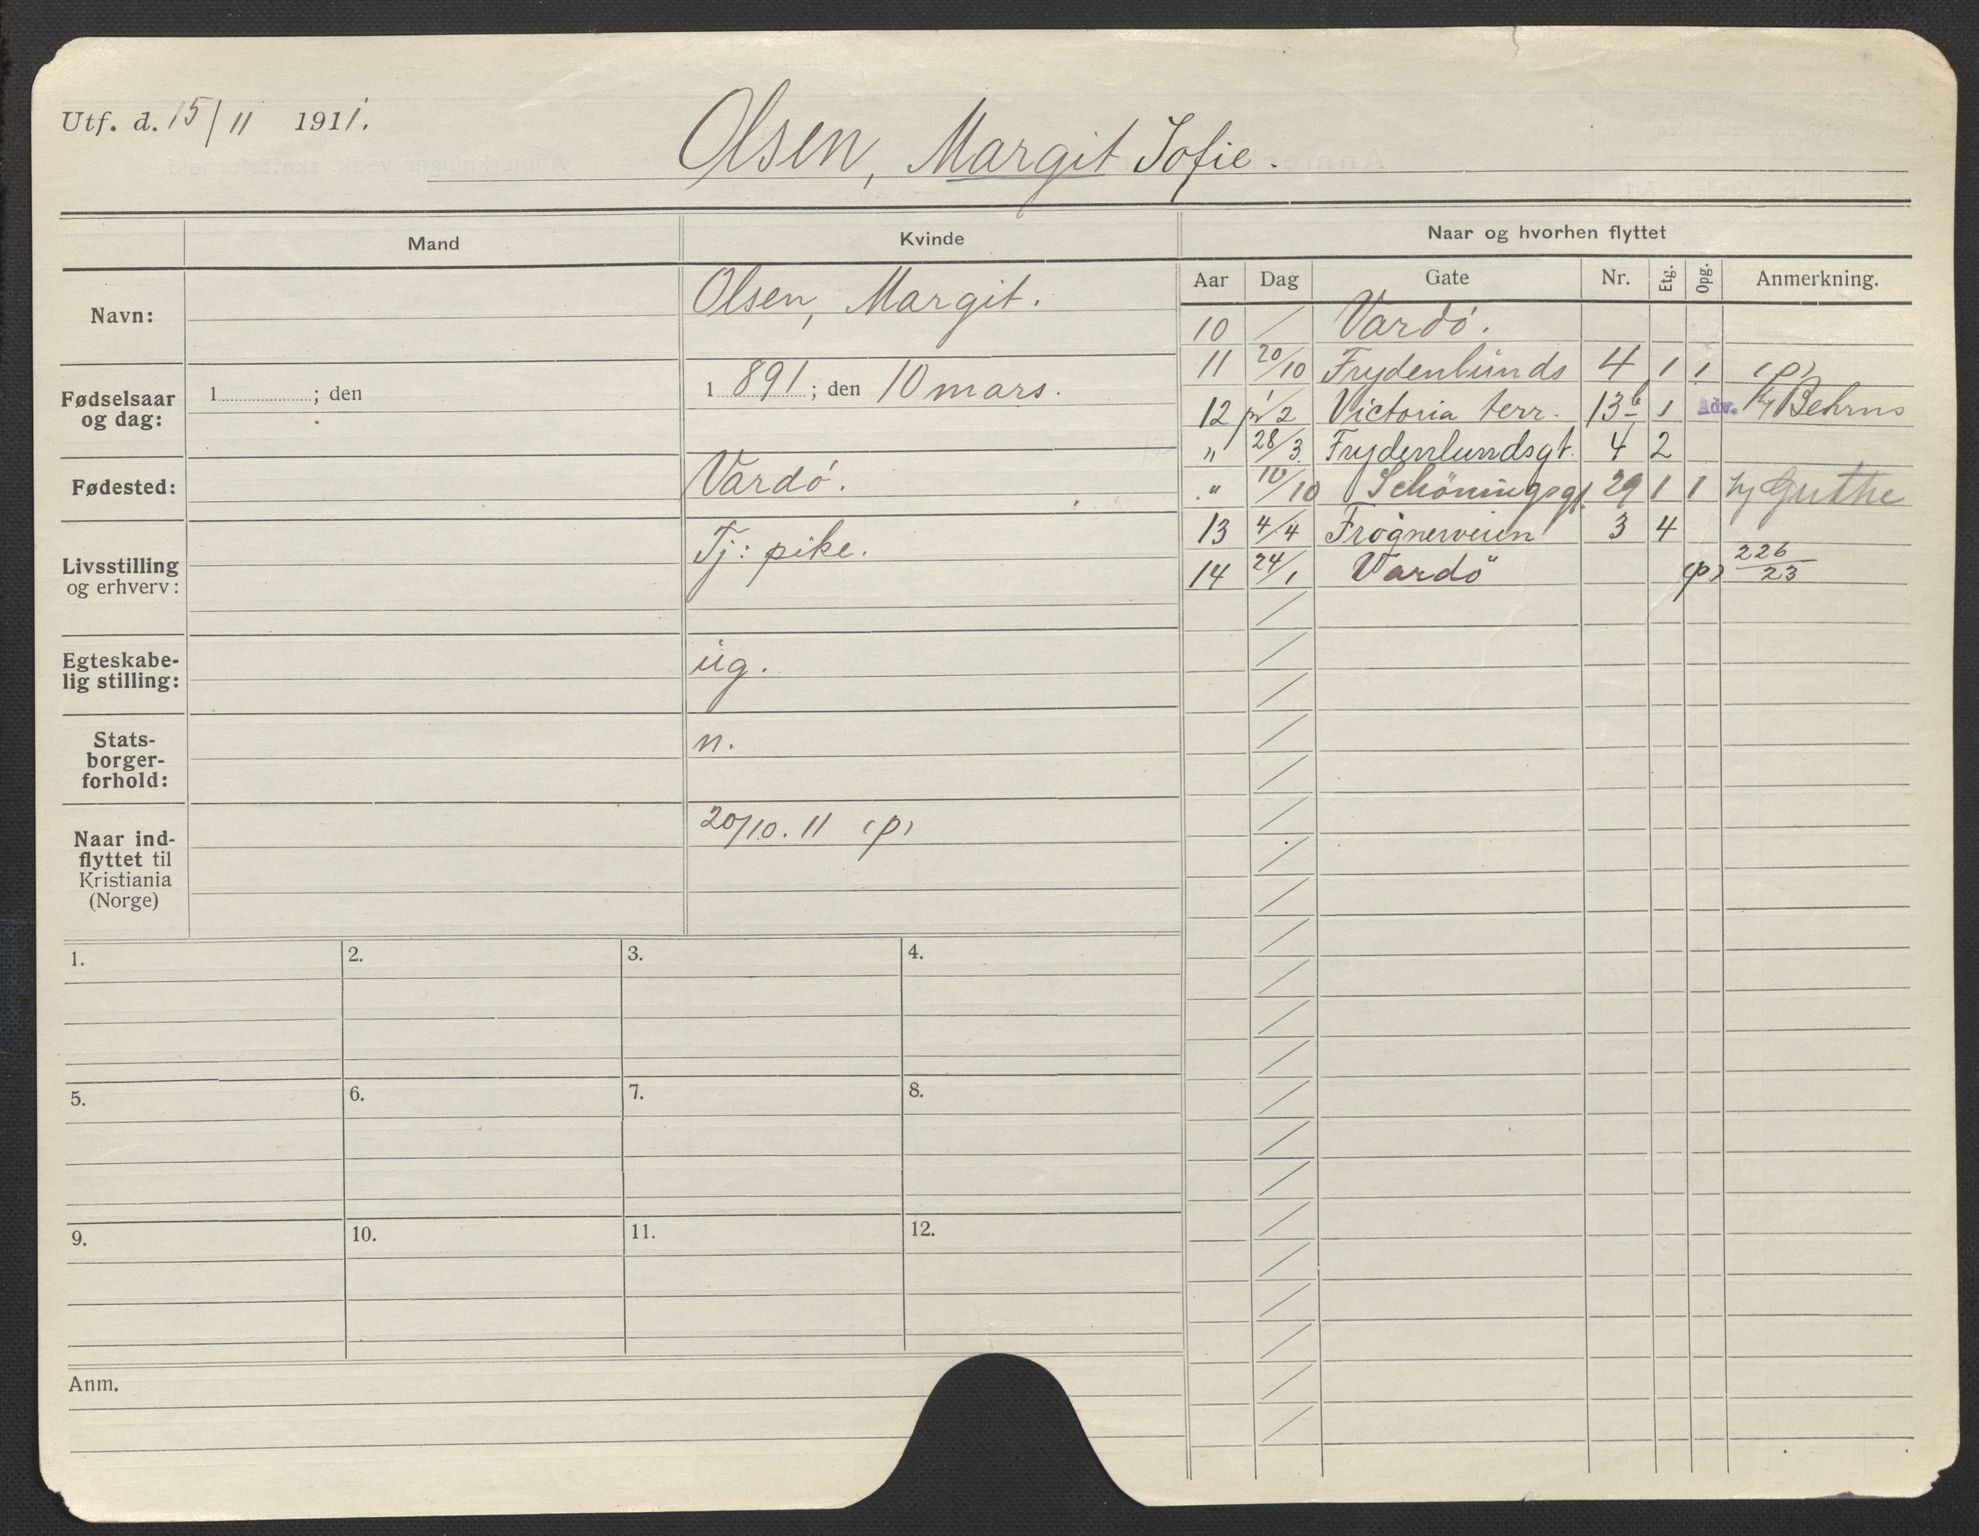 Utf. d. 15/11 1911.
Olsen, Margit Sofie.
Mand
Kvinde
Naar og hvorhen flyttet
Aar Dag Gate Nr. Etg. Opg. Anmerkning.
Navn:
Olsen, Margit.
Fødselsaar
og dag:
1 ; den
1 891 ; den 10 mars.
Fødested:
Vardö.
Livsstilling
og erhverv:
Tj: pike.
Egteskabe-
lig stilling:
ug.
Stats-
borger-
forhold:
n.
Naar ind-
flyttet til
Kristiania
(Norge)
20/10. 11 (p)
10 / Vardö.
11 20/10 Frydenlunds 4 1 1 (p)
12 2 Victoria terr. 13b 1 Adv. Behrns
„ 28/3 Frydenlundsgt. 4 2
„ 10/10 Schöningsgt. 29 1 1 hj Guthe
13 4/4 Frognerveien 3 4
14 24/1 Vardö (p) 226/23
1. 2. 3. 4.
5. 6. 7. 8.
9. 10. 11. 12.
Anm.